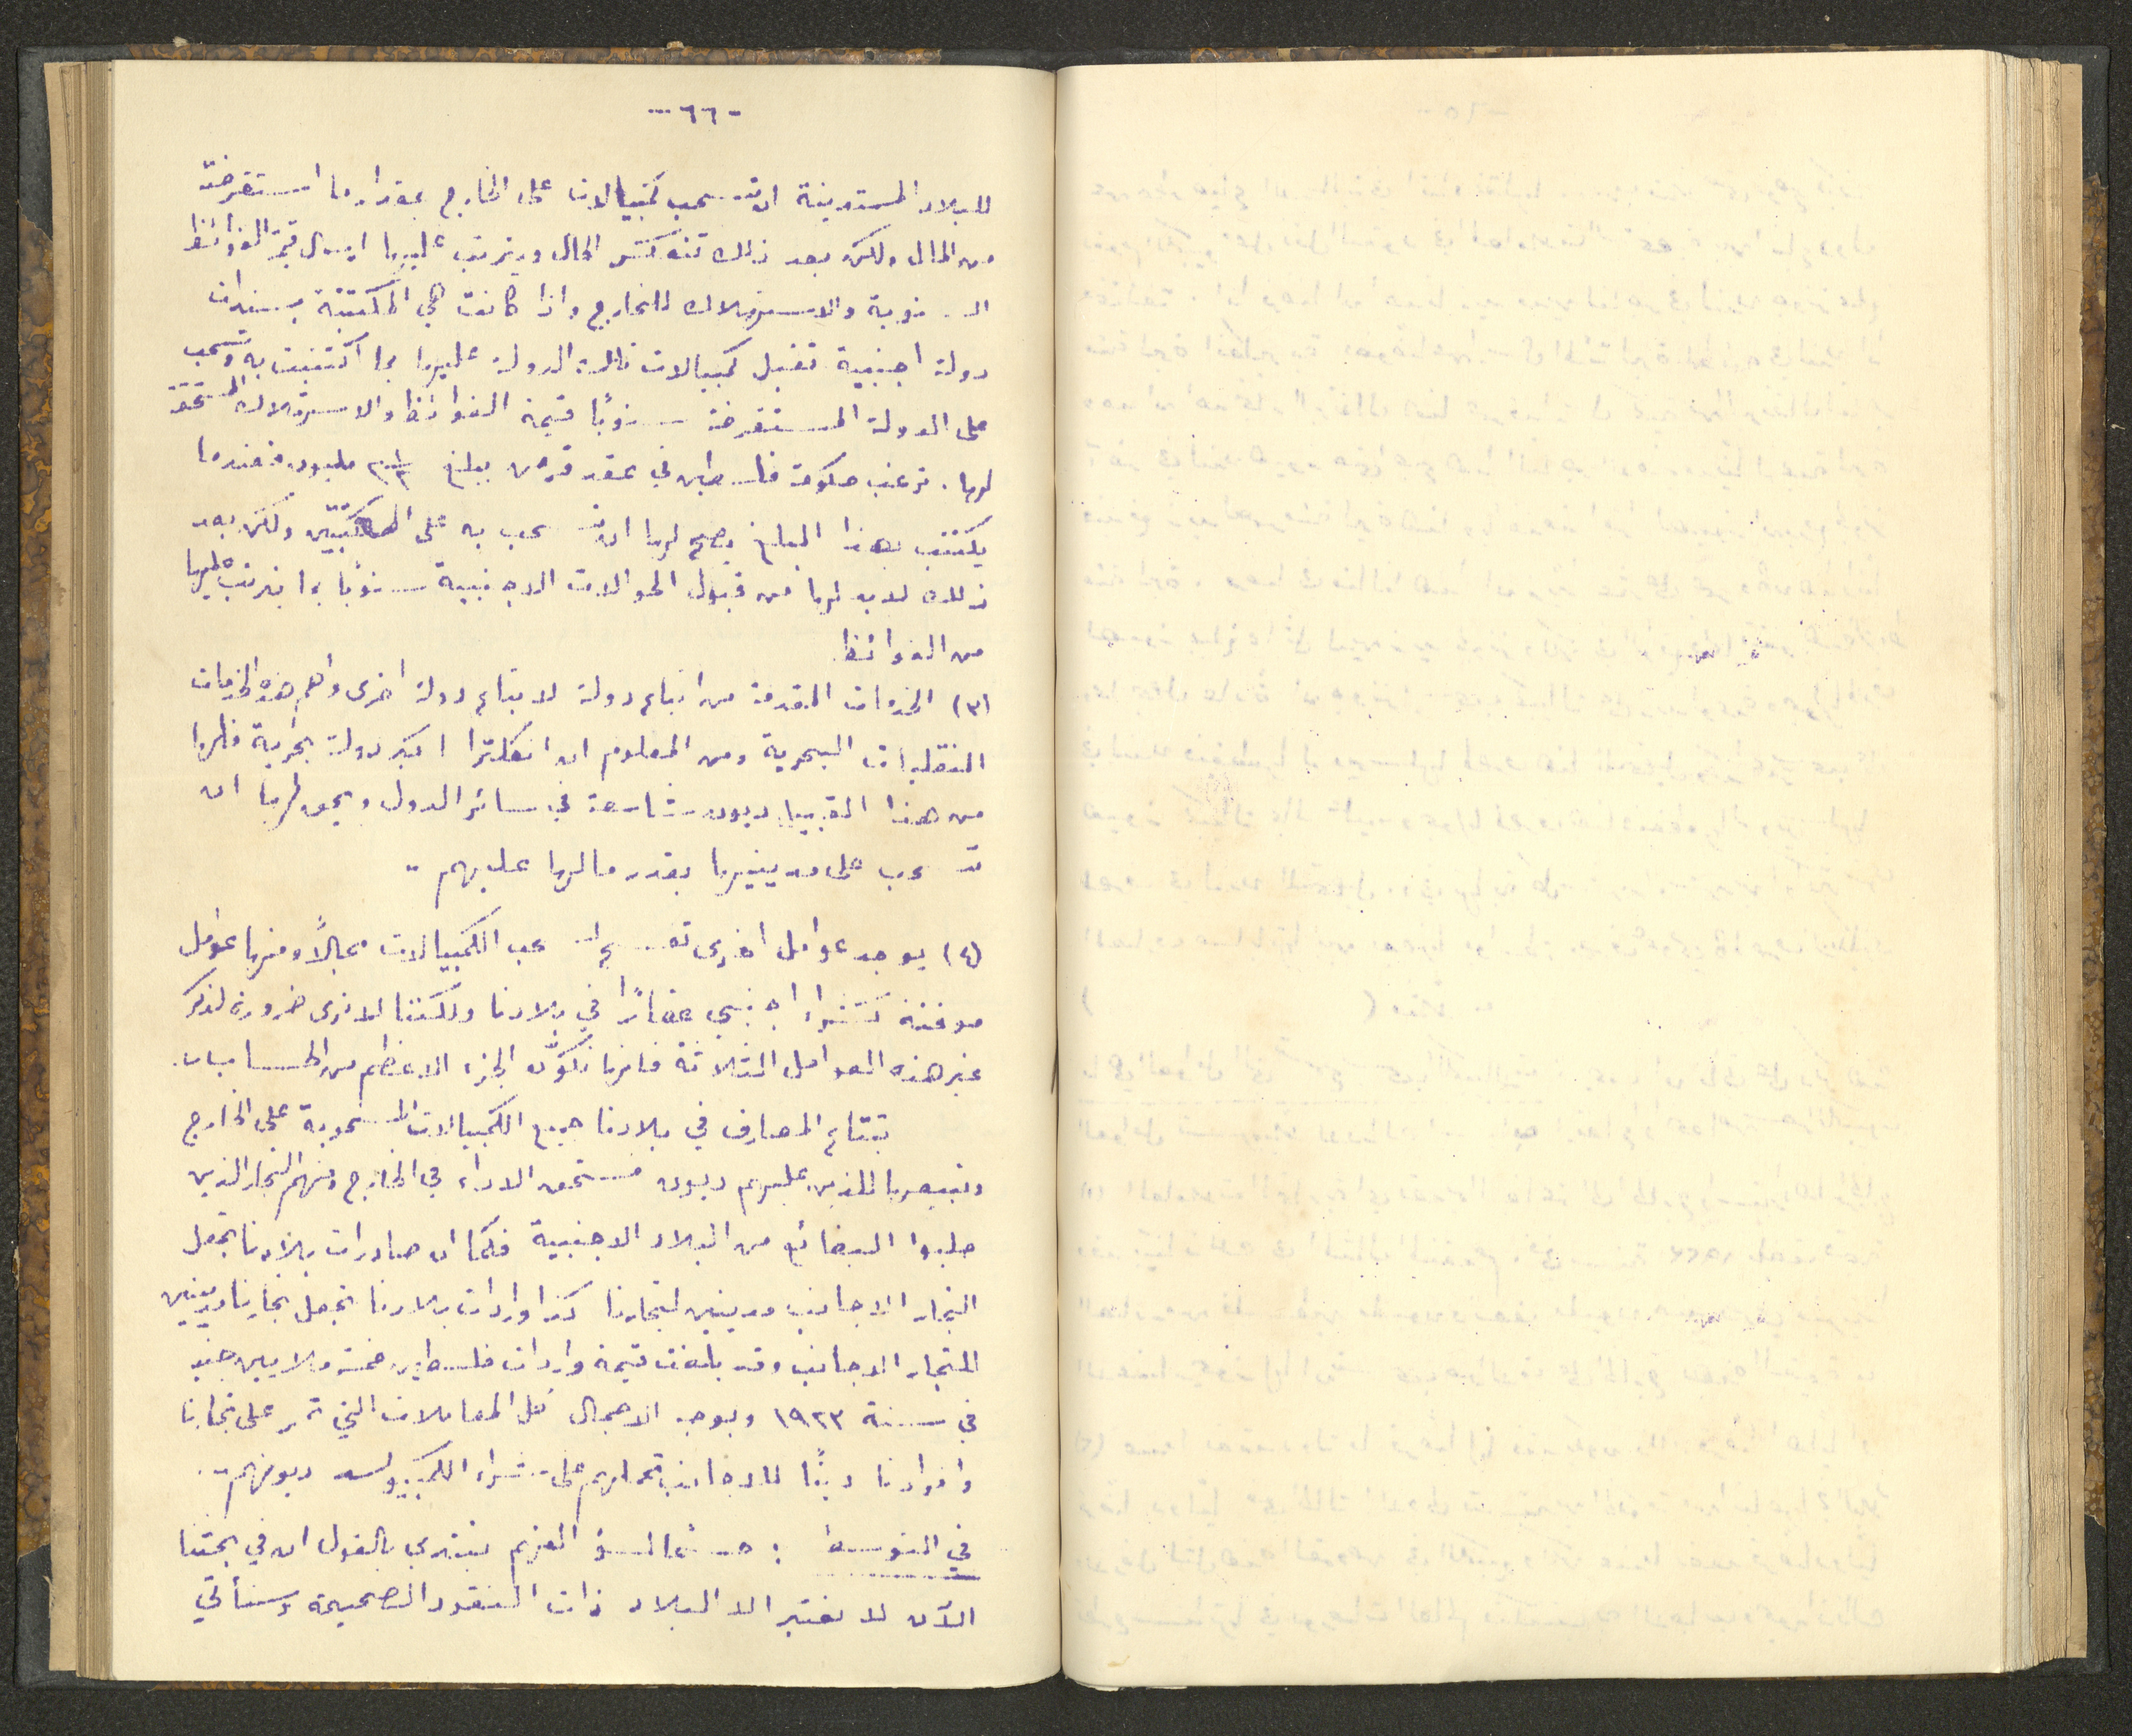 -٦٦-
للبلاد المستدينة ان تسحب كمبيالات على الخارج بمقدار ما استقرضته
من المال ولكن بعد ذلك تنعكس الحال ويترتب عليها ارسال قيمة الفوائظ
السنوية والاستهلاك للخارج واذا كانت هي المكتتبة بسندات
دولة اجنبية تقبل كمبيالات تلك الدولة عليها بما اكتتبت به وتسحب
على الدولة المستقرضة سنويًا قيمة الفوائظ والاستهلاك المستحقة
لها. ترغب حكومة فلسطين في عقد قرض يبلغ ٢ ١/٢ مليون فعندما
يكتتب بهذا المبلغ يصح لها ان تسحب به على المكتتبين ولكن بعد
ذلك لا بد لها من قبول الحوالات الاجنبية سنويًا بما يترتب عليها
من الفوائظ
(٣) الخدمات المقدمة من اتباع دولة لاتباع دولة اخرى واهم هذه الخدمات
النقليات البحرية ومن المعلوم ان انكلترا اكبر دولة بحرية فلها
من هذا القبيل ديون شاسعة في سائر الدول ويحق لها ان
تسحب على مدينيها بقدر مالها عليهم..
(٤) يوجد عوامل اخرى تفسح لسحب الكمبيالات مجالًا ومنها عوامل
موقتة كشراء اجنبي عقارًا في بلادنا ولكننا لا نرى ضرورة لذكر
غير هذه العوامل الثلاثة فانها تكوّن الجزء الاعظم من الحسابات.
تبتاع المصارف في بلادنا جميع الكمبيالات المسحوبة على الخارج
وتبيعها للذين عليهم ديون مستحق الاداء في الخارج ومنهم التجار الذين
جلبوا البضائع من البلاد الاجنبية فكما ان صادرات بلادنا تجعل
التجار الاجانب مدينين لتجارنا كذا واردات بلادنا تجعل تجارنا مدينين
للتجار الاجانب وقد بلغت قيمة واردات فلسطين خمسة ملايين جنيه
في سنة ١٩٢٣ وبوجه الاجمال كل المعاملات التي تمر على تجارنا
وافرادنا دينًا للاجانب تحملهم على شراء الكمبيو لسد ديونهم..
في المتوسط : حد نبتدي بالقول ان في بحثنا
الآن لا نعتبر الا البلاد ذات النقود الصحيحة وسنأتي